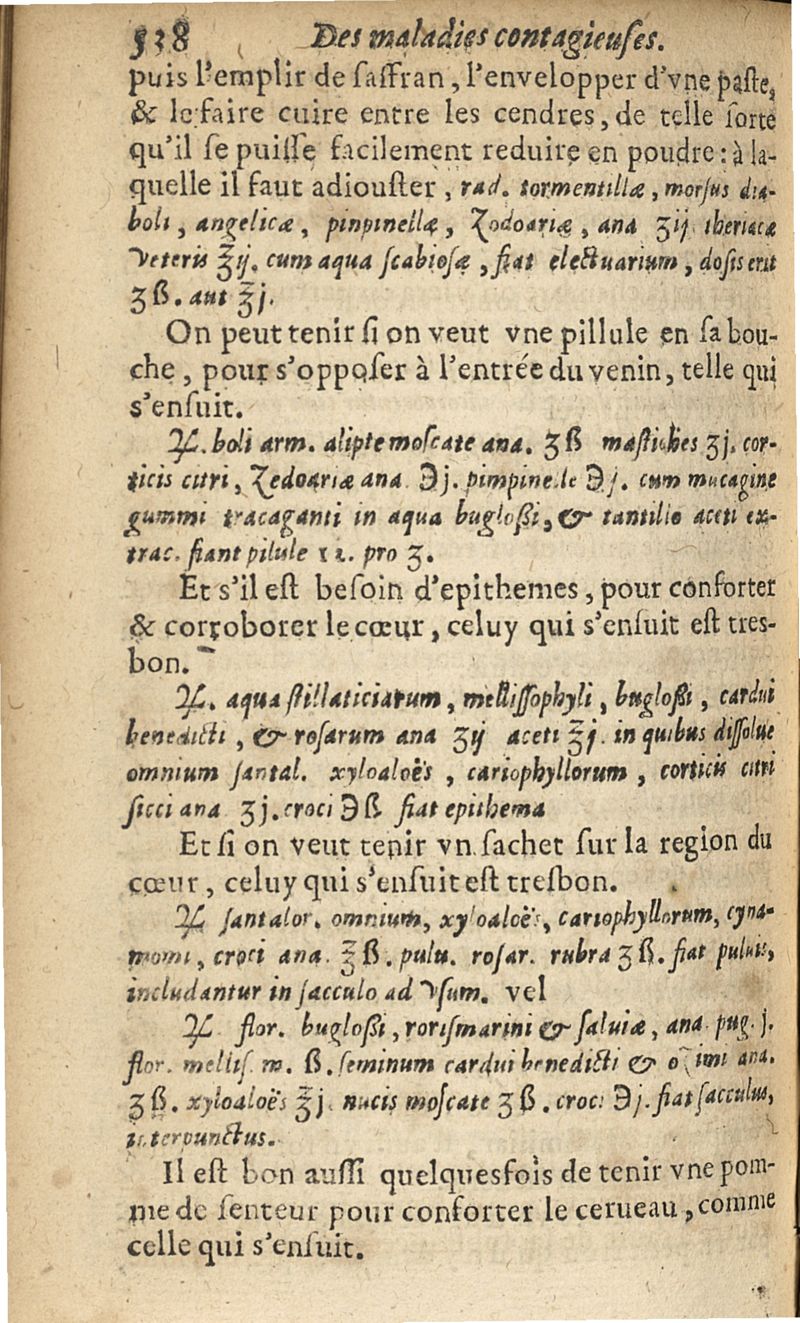 538 Des maladies contagieuſes.
puis l'emplir de ſaffran, l'envelopper d'vne paſte,
& le faire cuire entre les cendres, de telle ſorte
qu'il ſe puiſſe facilement reduire en poudre: à la-
quelle il faut adiouſter, rad. tormentillæ, morſus dia-
boli, angelicæ, pinpinellæ, Zodoariæ, ana ʒij theriacæ
veteris ℥ij. cum aqua ſcabioſæ, fiat electuarium, doſis erit
ʒß. aut ℥j.
On peut tenir ſi on veut vne pillule en ſa bou-
che, pour s'oppoſer à l'entrée du venin, telle qui
s'enſuit.
℞. boli arm. alipte moſcate ana. ʒß maſtiches ʒj. cor-
ticis citri, Zedoariæ ana ℈j. pimpinele ℈j. cum mucagine
gummi tracaganti in aqua bugloßi, & tantillo aceti ex-
trac. fiant pilule 12. pro ʒ.
Et s'il eſt beſoin d'epithemes, pour conforter
& corroborer le cœur, celuy qui s'enſuit eſt tres-
bon.
℞. aqua ſtillaticiarum, melliſſophyli, bugloßi, cardui
benedicti, & roſarum ana ʒij aceti ℥j. in quibus diſſolue
omnium ſantal. xyloaloës, cariophyllorum, corticis citri
ſicci ana ʒj. croci ℈ß fiat epithema
Et ſi on veut tenir vn ſachet ſur la region du
cœur, celuy qui s'enſuit eſt tresbon.
℞ ſantalor. omnium, xyloaloës, cariophyllorum, cyna-
momi, croci ana. ℥ß. pulu. roſar. rubra ʒß. fiat puluis,
includantur in ſacculo ad vſum. vel
℞ flor. bugloßi, roriſmarini & ſaluiæ, ana pug. j.
flor. melliſ. m. ß. ſeminum cardui benedicti & ozimi ana.
ʒß. xyloaloës ℥j. nucis moſcate ʒß. croci ℈j. fiat ſacculus,
interpunctus.
Il eſt bon auſſi quelquesfois de tenir vne pom-
me de ſenteur pour conforter le cerueau, comme
celle qui s'enſuit.